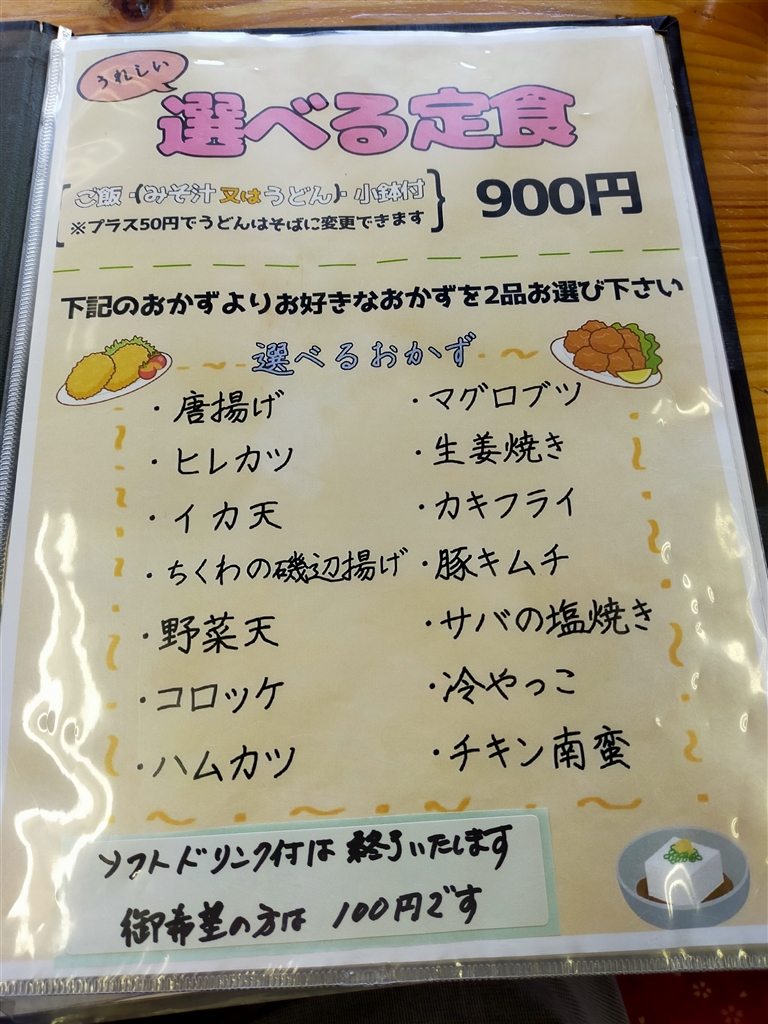 うれしい
選べる定食
ご飯・(みそ汁又はうどん)・小鉢付
※プラス50円でうどんはそばに変更できます
900円
下記のおかずよりお好きなおかずを2品お選び下さい
選べるおかず
・唐揚げ
・ヒレカツ
・イカ天
・ちくわの磯辺揚げ
・野菜天
・コロッケ
・ハムカツ
・マグロブツ
・生姜焼き
・カキフライ
・豚キムチ
・サバの塩焼き
・冷やっこ
・チキン南蛮
ソフトドリンク付は終了いたします
御希望の方は100円です